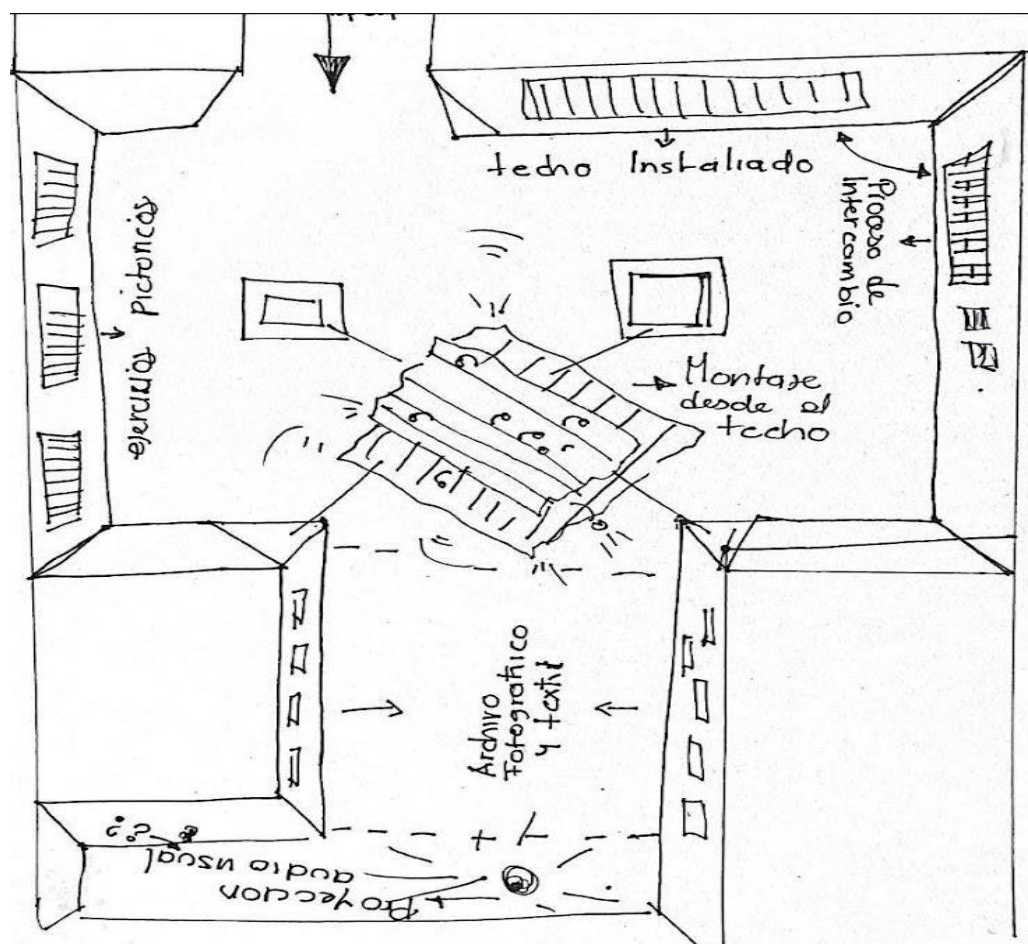 techo Instaliado
Proceso de
intercambio
ejercicios pictoricios
Montaje
desde el
techo
Archivo
Fotografico
y textil
¿?
Proyeccion
audio usual